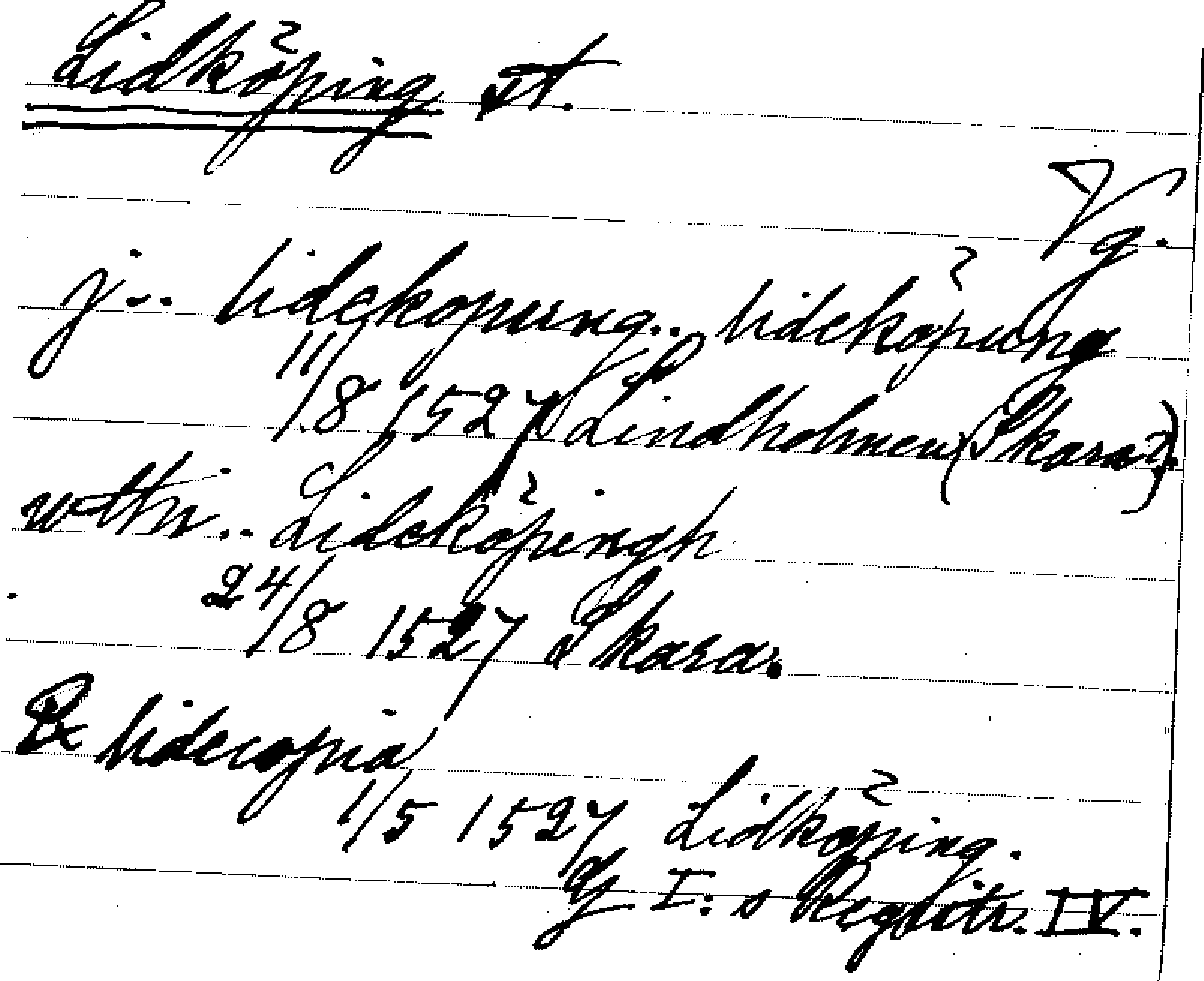 Lidköping st.
Vg.
j.. lidekopung.. lideköpung
11/8 1527 Lindholmen (Skara?).
wthi.. Lideköpingh
24/8 1527 Skara.
Ex lidecopia
1/5 1527 Lidköping.
G I: s Registr. IV.